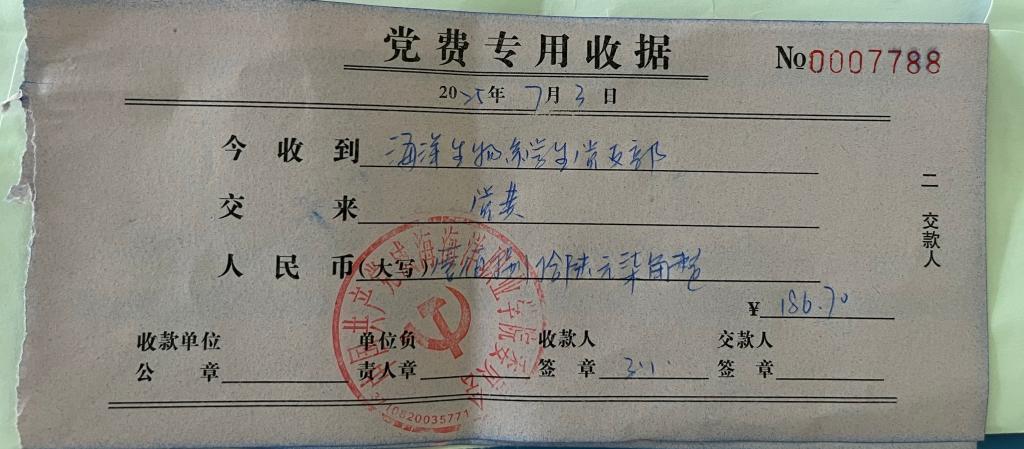 党费专用收据
No0007788
2025年7月3日
今收到 海洋生物系学生党支部
交来 党费
人民币(大写) 壹佰捌拾陆元柒角整
¥ 186.70
收款单位公章
单位负责人章
收款人签章
交款人签章
二 交款人
中国共产党 海海洋 业学院委员会
0820035771